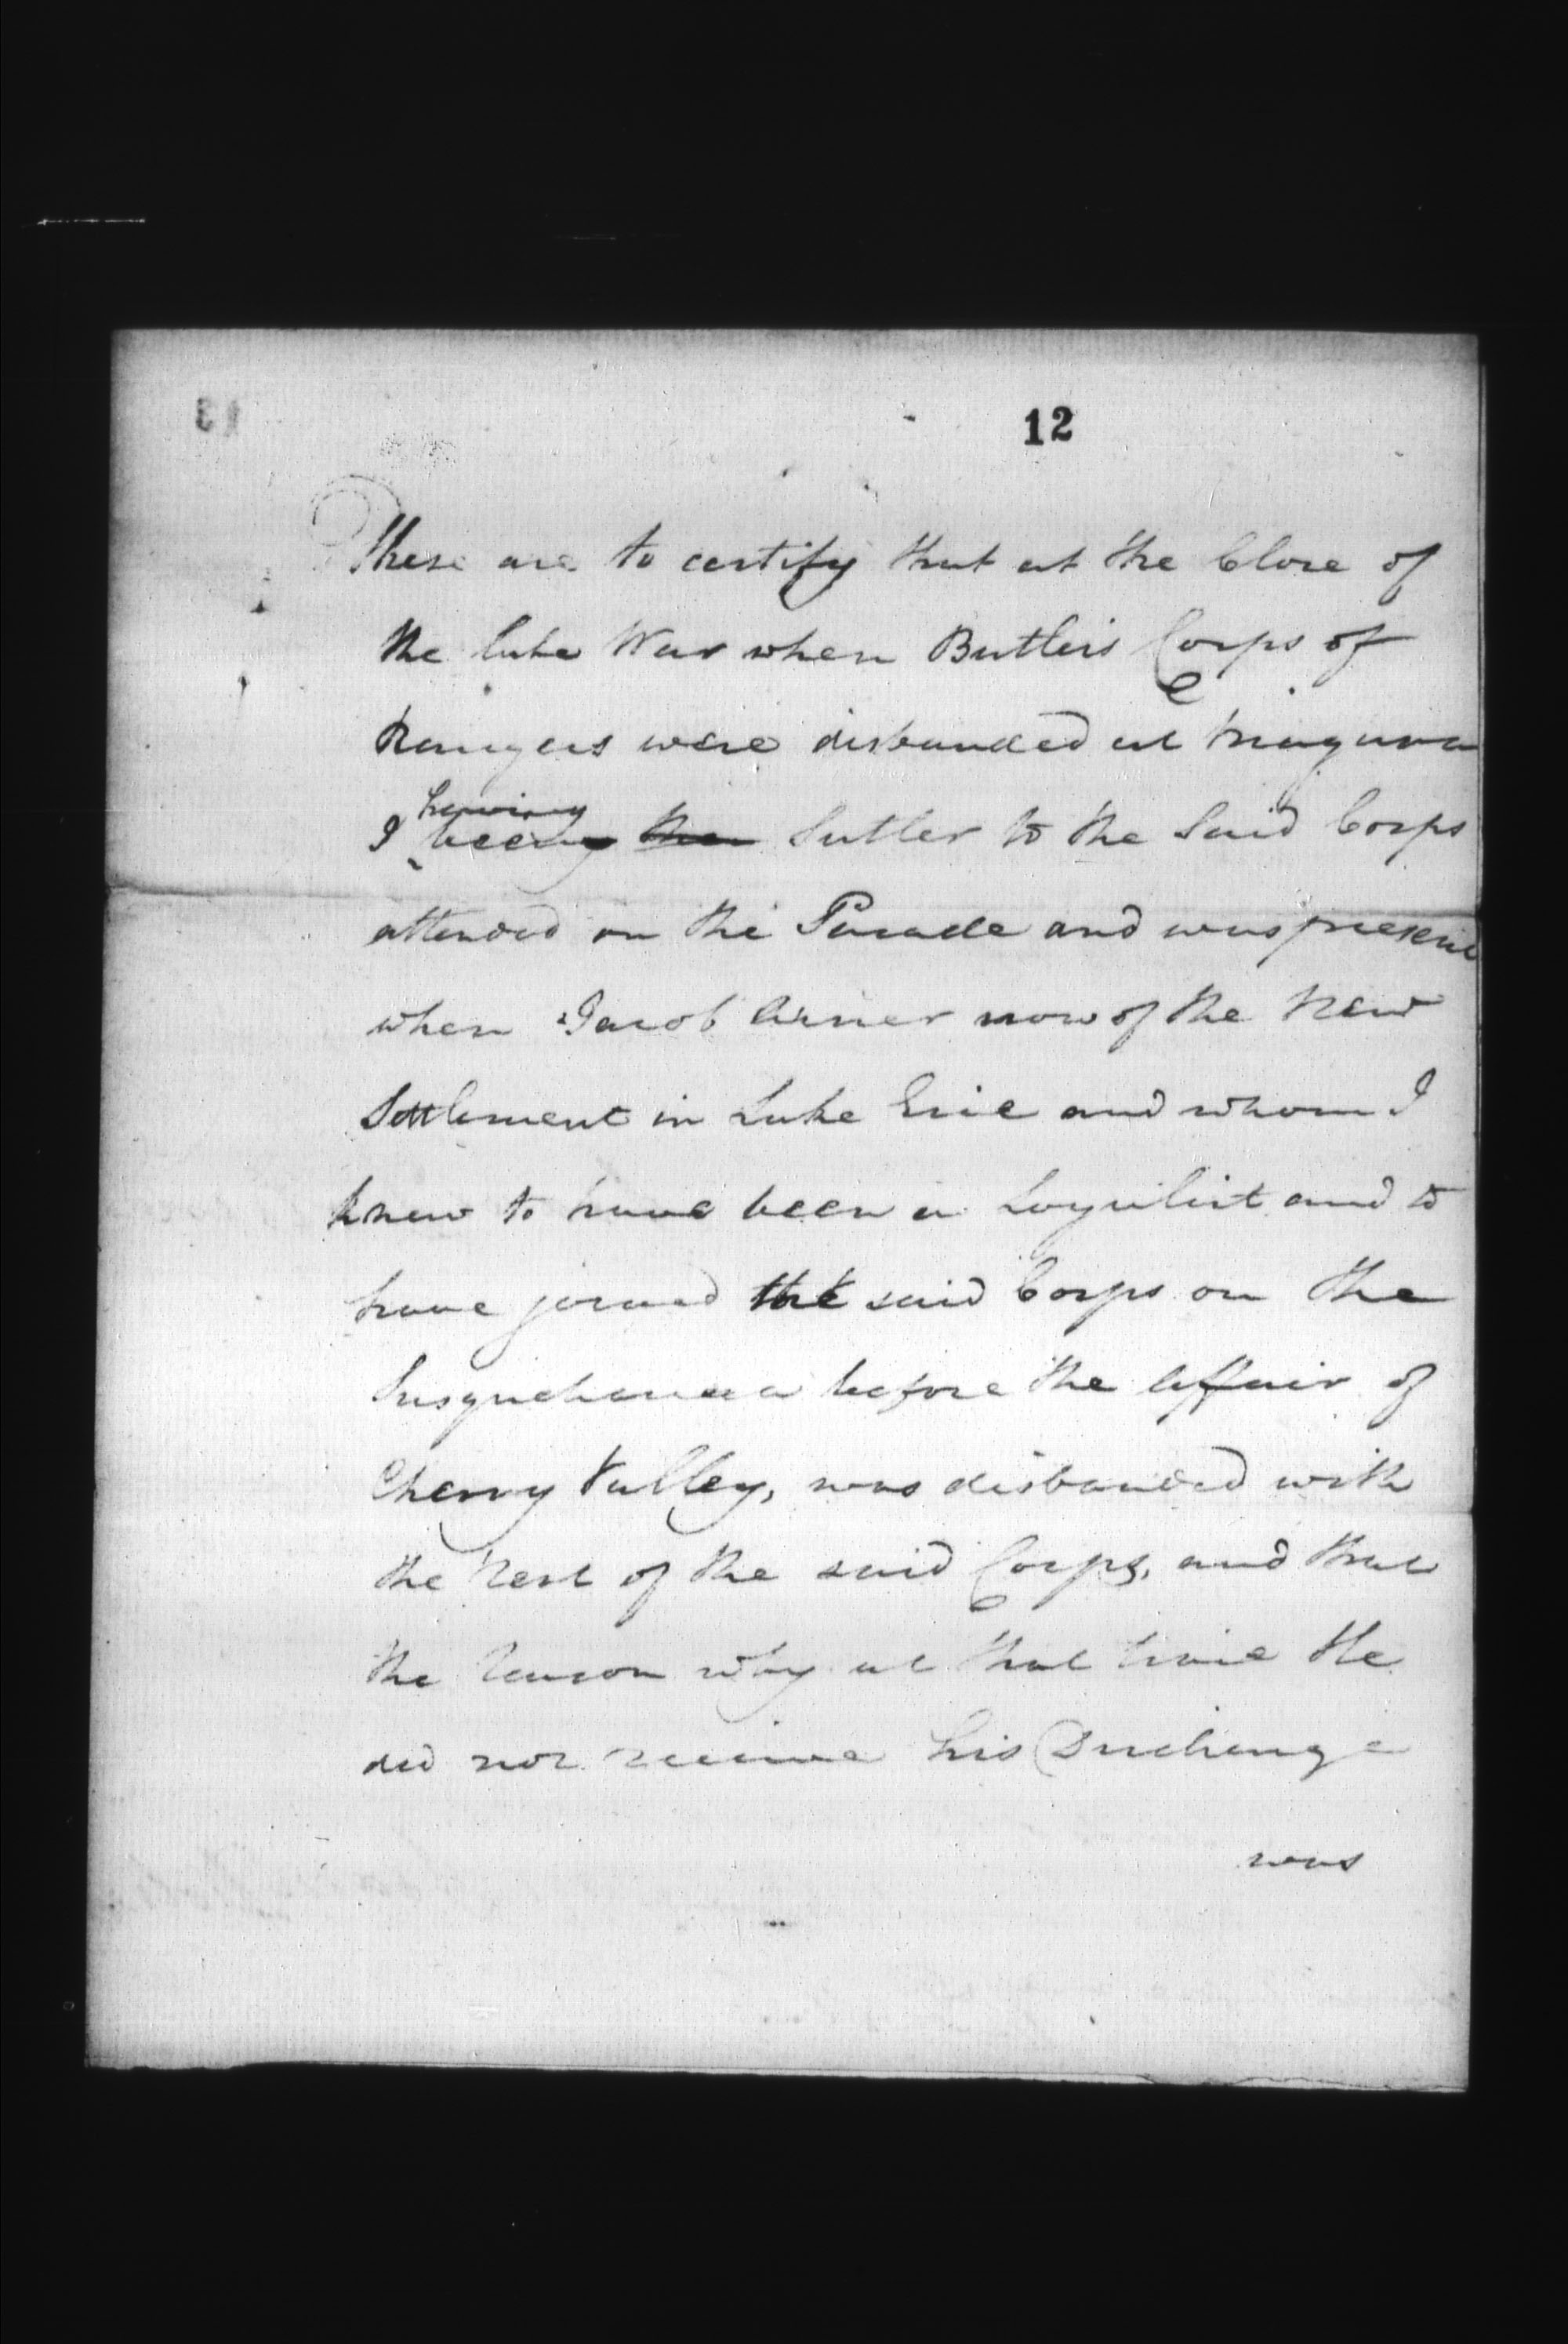 12
These are to certify that at the Close of
the late War when Butlers Corps of
Rangers were disbanded at Niagara
having
I been the Sutler to the Said Corps
attended on the Parade and was present
when Jacob Arner now of the New
Settlement in Lake Erie and whom I
knew to have been a Loyalist and to
have joined the said Corps on the
Susquehanna before the Affair of
Cherry Valley, was disbanded with
the Rest of the said Corps, and that
the Reason why at that time He
did not receive his Discharge
was